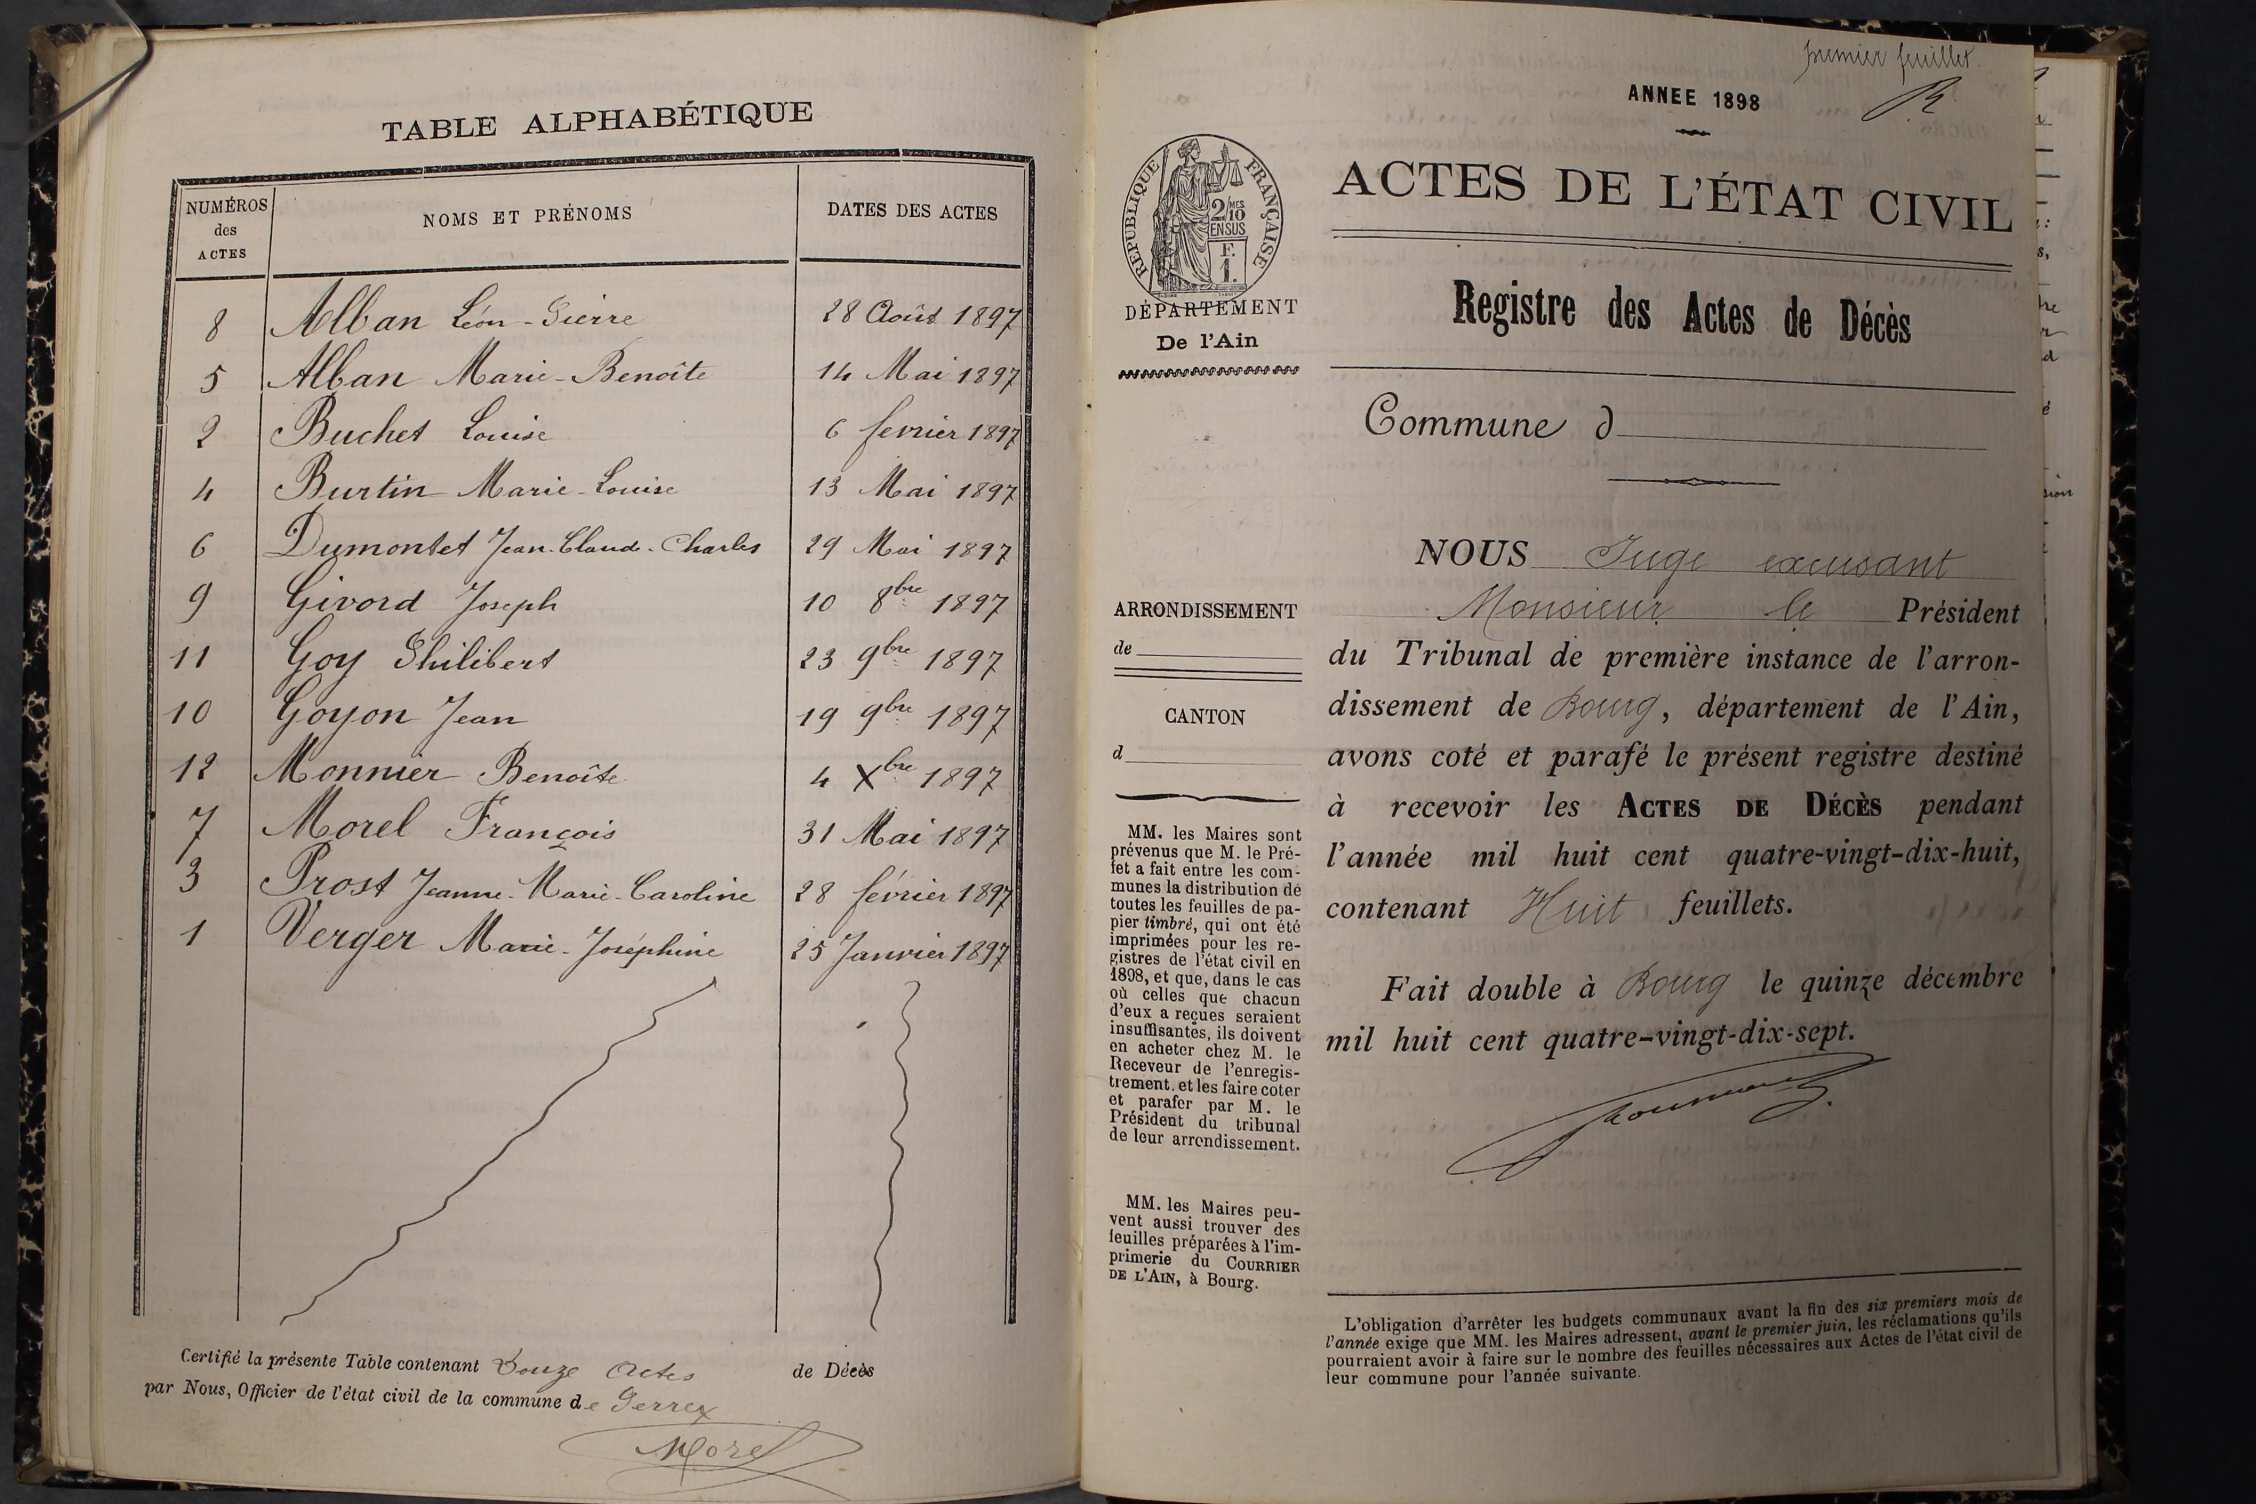 TABLE ALPHABÉTIQUE
NUMÉROS des ACTES
NOMS ET PRÉNOMS
DATES DES ACTES
8 Alban Léon-Pierre 28 Août 1897
5 Alban Marie-Benoîte 14 Mai 1897
2 Buchet Louise 6 fevrier 1897
4 Burtin Marie-Louise 13 Mai 1897
6 Dumontet Jean-Claude-Charles 29 Mai 1897
9 Givord Joseph 10 8bre 1897
11 Goy Philibert 23 9bre 1897
10 Goyon Jean 19 9bre 1897
12 Monnier Benoîte 4 Xbre 1897
7 Morel François 31 Mai 1897
3 Prost Jeanne-Marie-Caroline 28 février 1897
1 Verger Marie-Joséphine 25 Janvier 1897
Certifié la présente Table contenant Douze Actes de Décès
par Nous, Officier de l'état civil de la commune de Perrex
Morel
premier feuillet.
ANNEE 1898
RÉPUBLIQUE FRANÇAISE
2 MES
10
EN SUS
F.
1.
DÉPARTEMENT
De l'Ain
ACTES DE L'ÉTAT CIVIL
Registre des Actes de Décès
Commune d
ARRONDISSEMENT
de
CANTON
d
MM. les Maires sont
prévenus que M. le Pré-
fet a fait entre les com-
munes la distribution de
toutes les feuilles de pa-
pier timbré, qui ont été
imprimées pour les re-
gistres de l'état civil en
1898, et que, dans le cas
où celles que chacun
d'eux a reçues seraient
insuffisantes, ils doivent
en acheter chez M. le
Receveur de l'enregis-
trement, et les faire coter
et parafer par M. le
Président du tribunal
de leur arrondissement.
MM. les Maires peu-
vent aussi trouver des
feuilles préparées à l'im-
primerie du COURRIER
DE L'AIN, à Bourg.
NOUS Juge excusant
Monsieur le Président
du Tribunal de première instance de l'arron-
dissement de Bourg, département de l'Ain,
avons coté et parafé le présent registre destiné
à recevoir les ACTES DE DÉCÈS pendant
l'année mil huit cent quatre-vingt-dix-huit,
contenant Huit feuillets.
Fait double à Bourg le quinze décembre
mil huit cent quatre-vingt-dix-sept.
L'obligation d'arrêter les budgets communaux avant la fin des six premiers mois de
l'année exige que MM. les Maires adressent, avant le premier juin, les réclamations qu'ils
pourraient avoir à faire sur le nombre des feuilles nécessaires aux Actes de l'état civil de
leur commune pour l'année suivante.